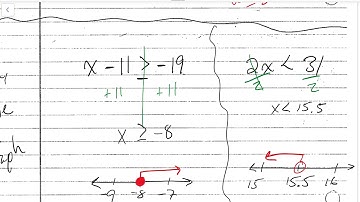 x - 11 ≥ -19
+11 +11
x ≥ -8
-9 -8 -7
2x < 31
2 2
x < 15.5
15 15.5 16